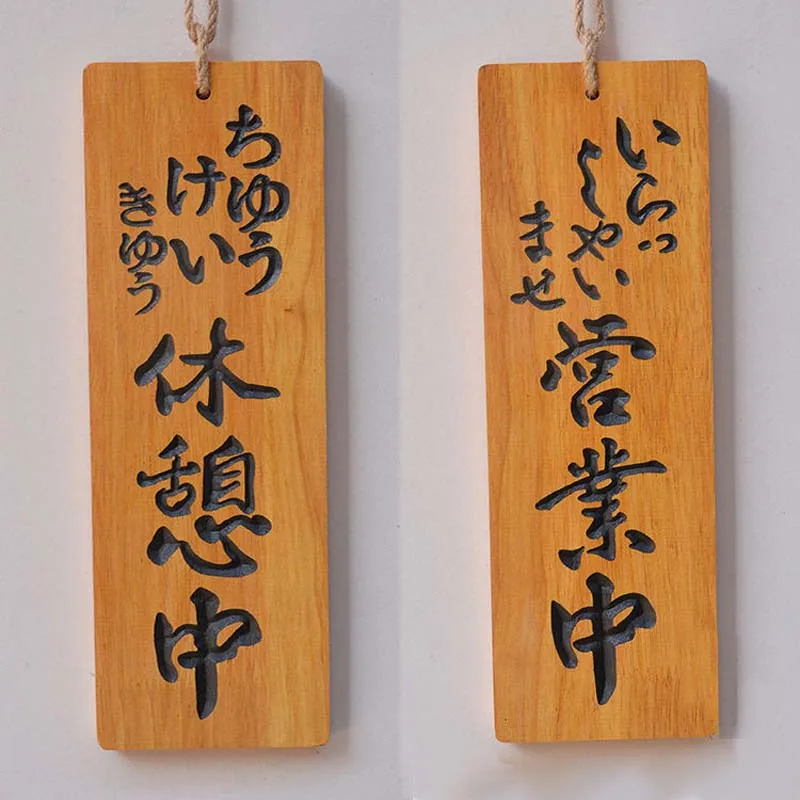 ちゅう
けい
きゅう
休憩中
いらっ
しゃい
ませ
営業中